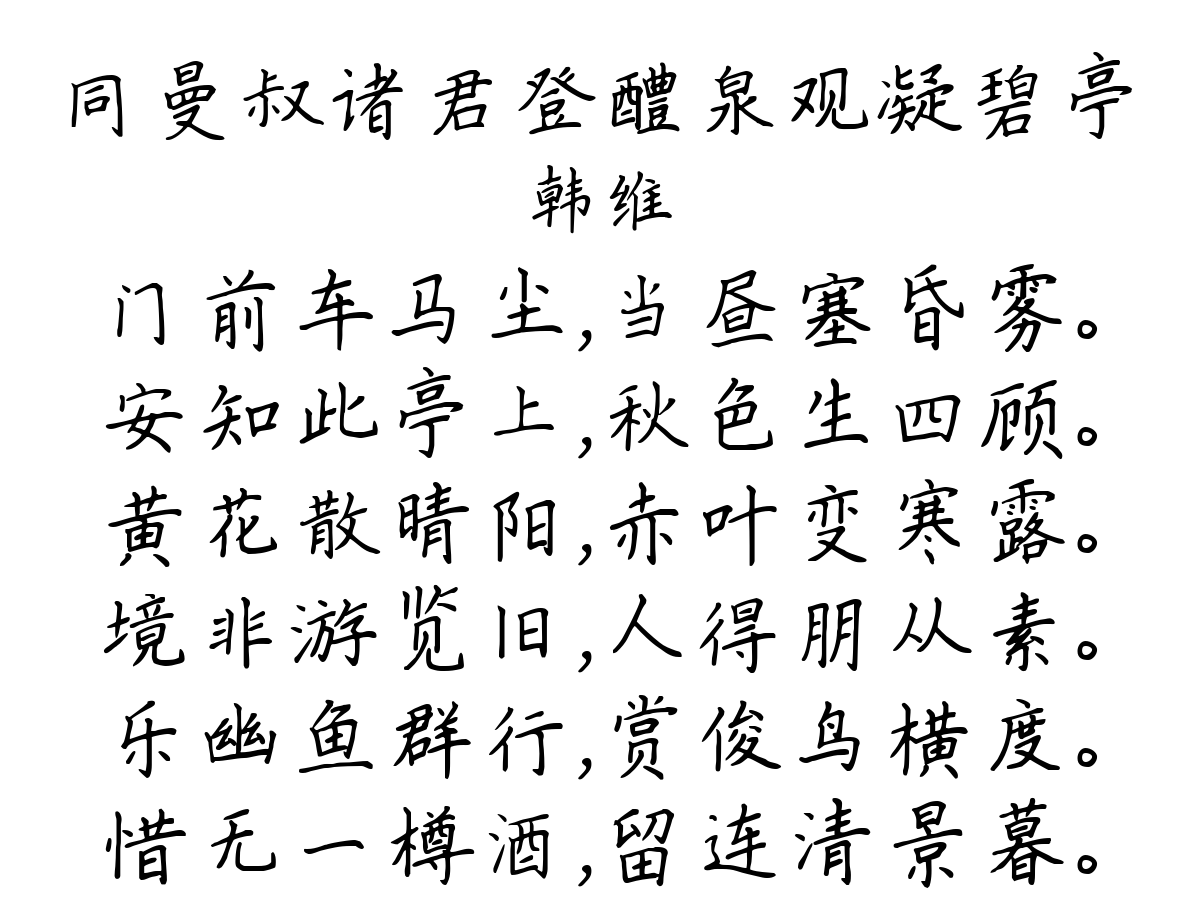 同曼叔诸君登醴泉观凝碧亭
韩维
门前车马尘,当昼塞昏雾。
安知此亭上,秋色生四顾。
黄花散晴阳,赤叶变寒露。
境非游览旧,人得朋从素。
乐幽鱼群行,赏俊鸟横度。
惜无一樽酒,留连清景暮。